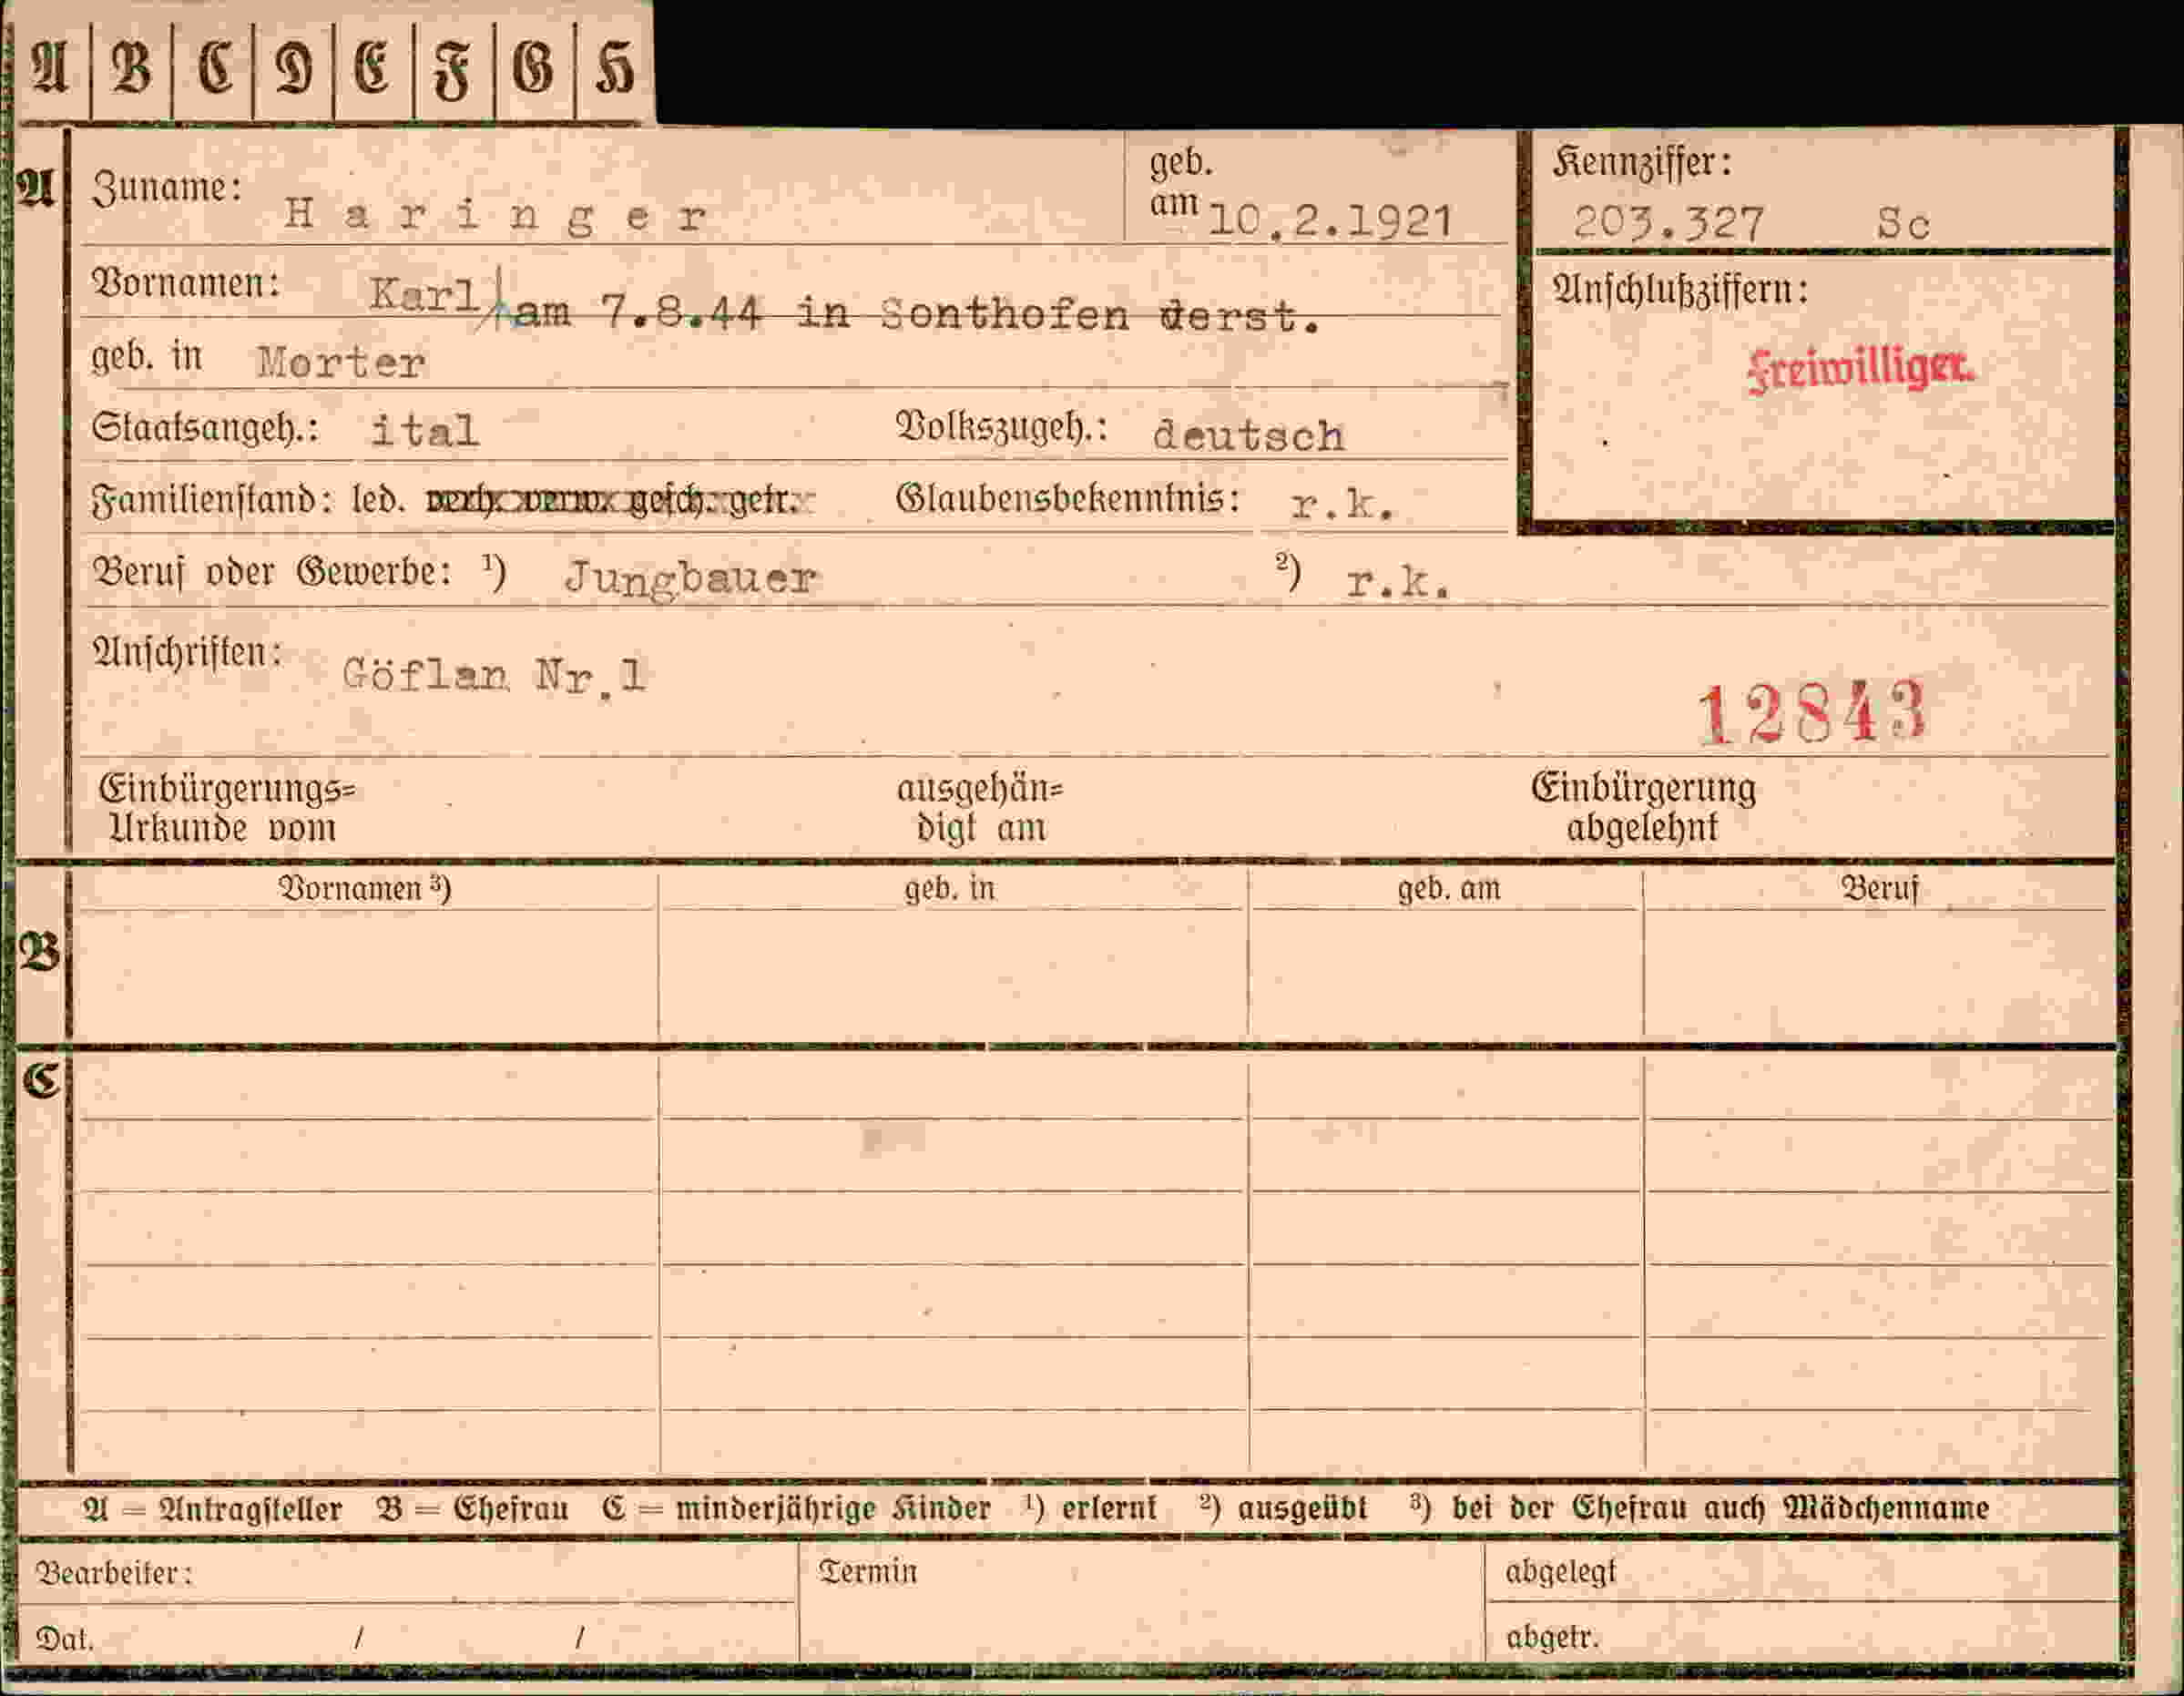 A B C D E F G H
A Zuname: Haringer geb. am 10.2.1921 Kennziffer: 203.327 Sc
Vornamen: Karl/am 7.8.44 in Sonthofen derst. Anschlußziffern:
Freiwilliger.
geb. in Morter
Staatsangeh.: ital Volkszugeh.: deutsch
Familienstand: led. verh. verw. gesch. getr. Glaubensbekenntnis: r.k.
Beruf oder Gewerbe: ¹) Jungbauer ²) r.k.
Anschriften: Göflan Nr.1
12843
Einbürgerungs= Urkunde vom ausgehän= digt am Einbürgerung abgelehnt
Vornamen ³) geb. in geb. am Beruf
B
C
A = Antragsteller B = Ehefrau C = minderjährige Kinder ¹) erlernt ²) ausgeübt ³) bei der Ehefrau auch Mädchenname
Bearbeiter: Termin abgelegt
Dat. / / abgetr.